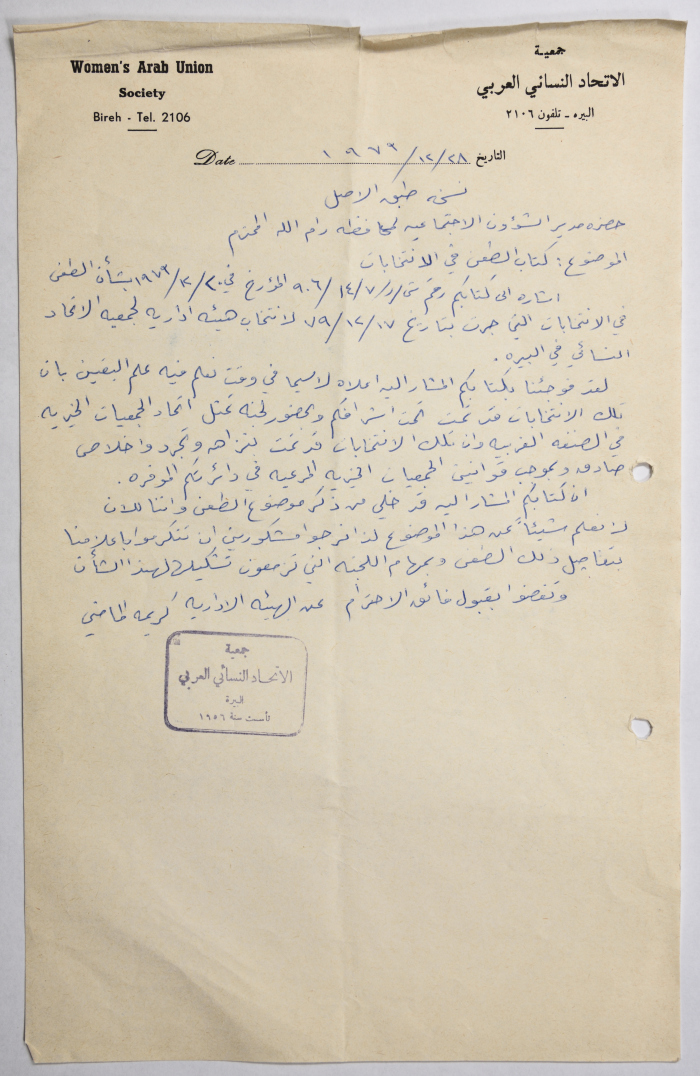 Women's Arab Union
Society
Bireh - Tel. 2106
جمعية
الاتحاد النسائي العربي
البيره - تلفون ٢١٠٦
Date التاريخ ٢٨/١٢/١٩٧٩
نسخه طبق الاصل
حضره مدير الشؤون الاجتماعيه لمحافظه رام الله المحترم
الموضوع : كتاب الطعن في الانتخابات
اشاره الى كتابكم رقم ش/ر/١٤/٧/٩٠٦ المؤرخ في بشأن الطعن
في الانتخابات التي جرت بتاريخ ١٧/١٢/٧٩ لانتخاب هيئه اداريه لجمعيه الاتحاد
النسائي في البيره .
لقد فوجئنا بكتابكم المشار اليه اعلاه لاسيما في وقت نعلم فيه علم اليقين بان
تلك الانتخابات قد تمت تحت اشرافكم وبحضور لجنه تمثل اتحاد الجمعيات الخيريه
في الضفه الغربيه وان تلك الانتخابات قد تمت بنزاهه وتجرد واخلاص
صادق وبموجب قوانين الجمعيات الخيريه المرعيه في دائرتكم الموقره .
ان كتابكم المشار اليه قد خلي من ذكر موضوع الطعن واننا للان
لا نعلم شيئاً عن هذا الموضوع لذا نرجوا مشكورين ان تتكرموا باعلامنا
بتفاصيل ذلك الطعن وبمهام اللجنه التي تزمعون تشكيلها لهذا الشأن
وتفضلوا بقبول فائق الاحترام عن الهيئه الاداريه كريمه الماضي
جمعية
الاتحاد النسائي العربي
البيرة
تأسست سنة ١٩٥٦